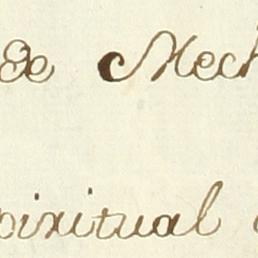 Mech
piritual